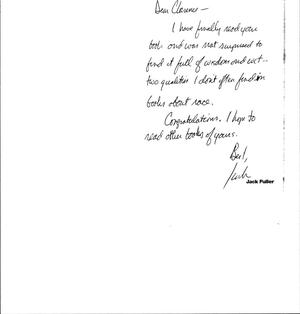 Dear Clarence —
I have finally read your
book and was not surprised to
find it full of wisdom and wit --
two qualities I don't often find in
books about race.
Congratulations. I hope to
read other books of yours.
Best,
Jack
Jack Fuller